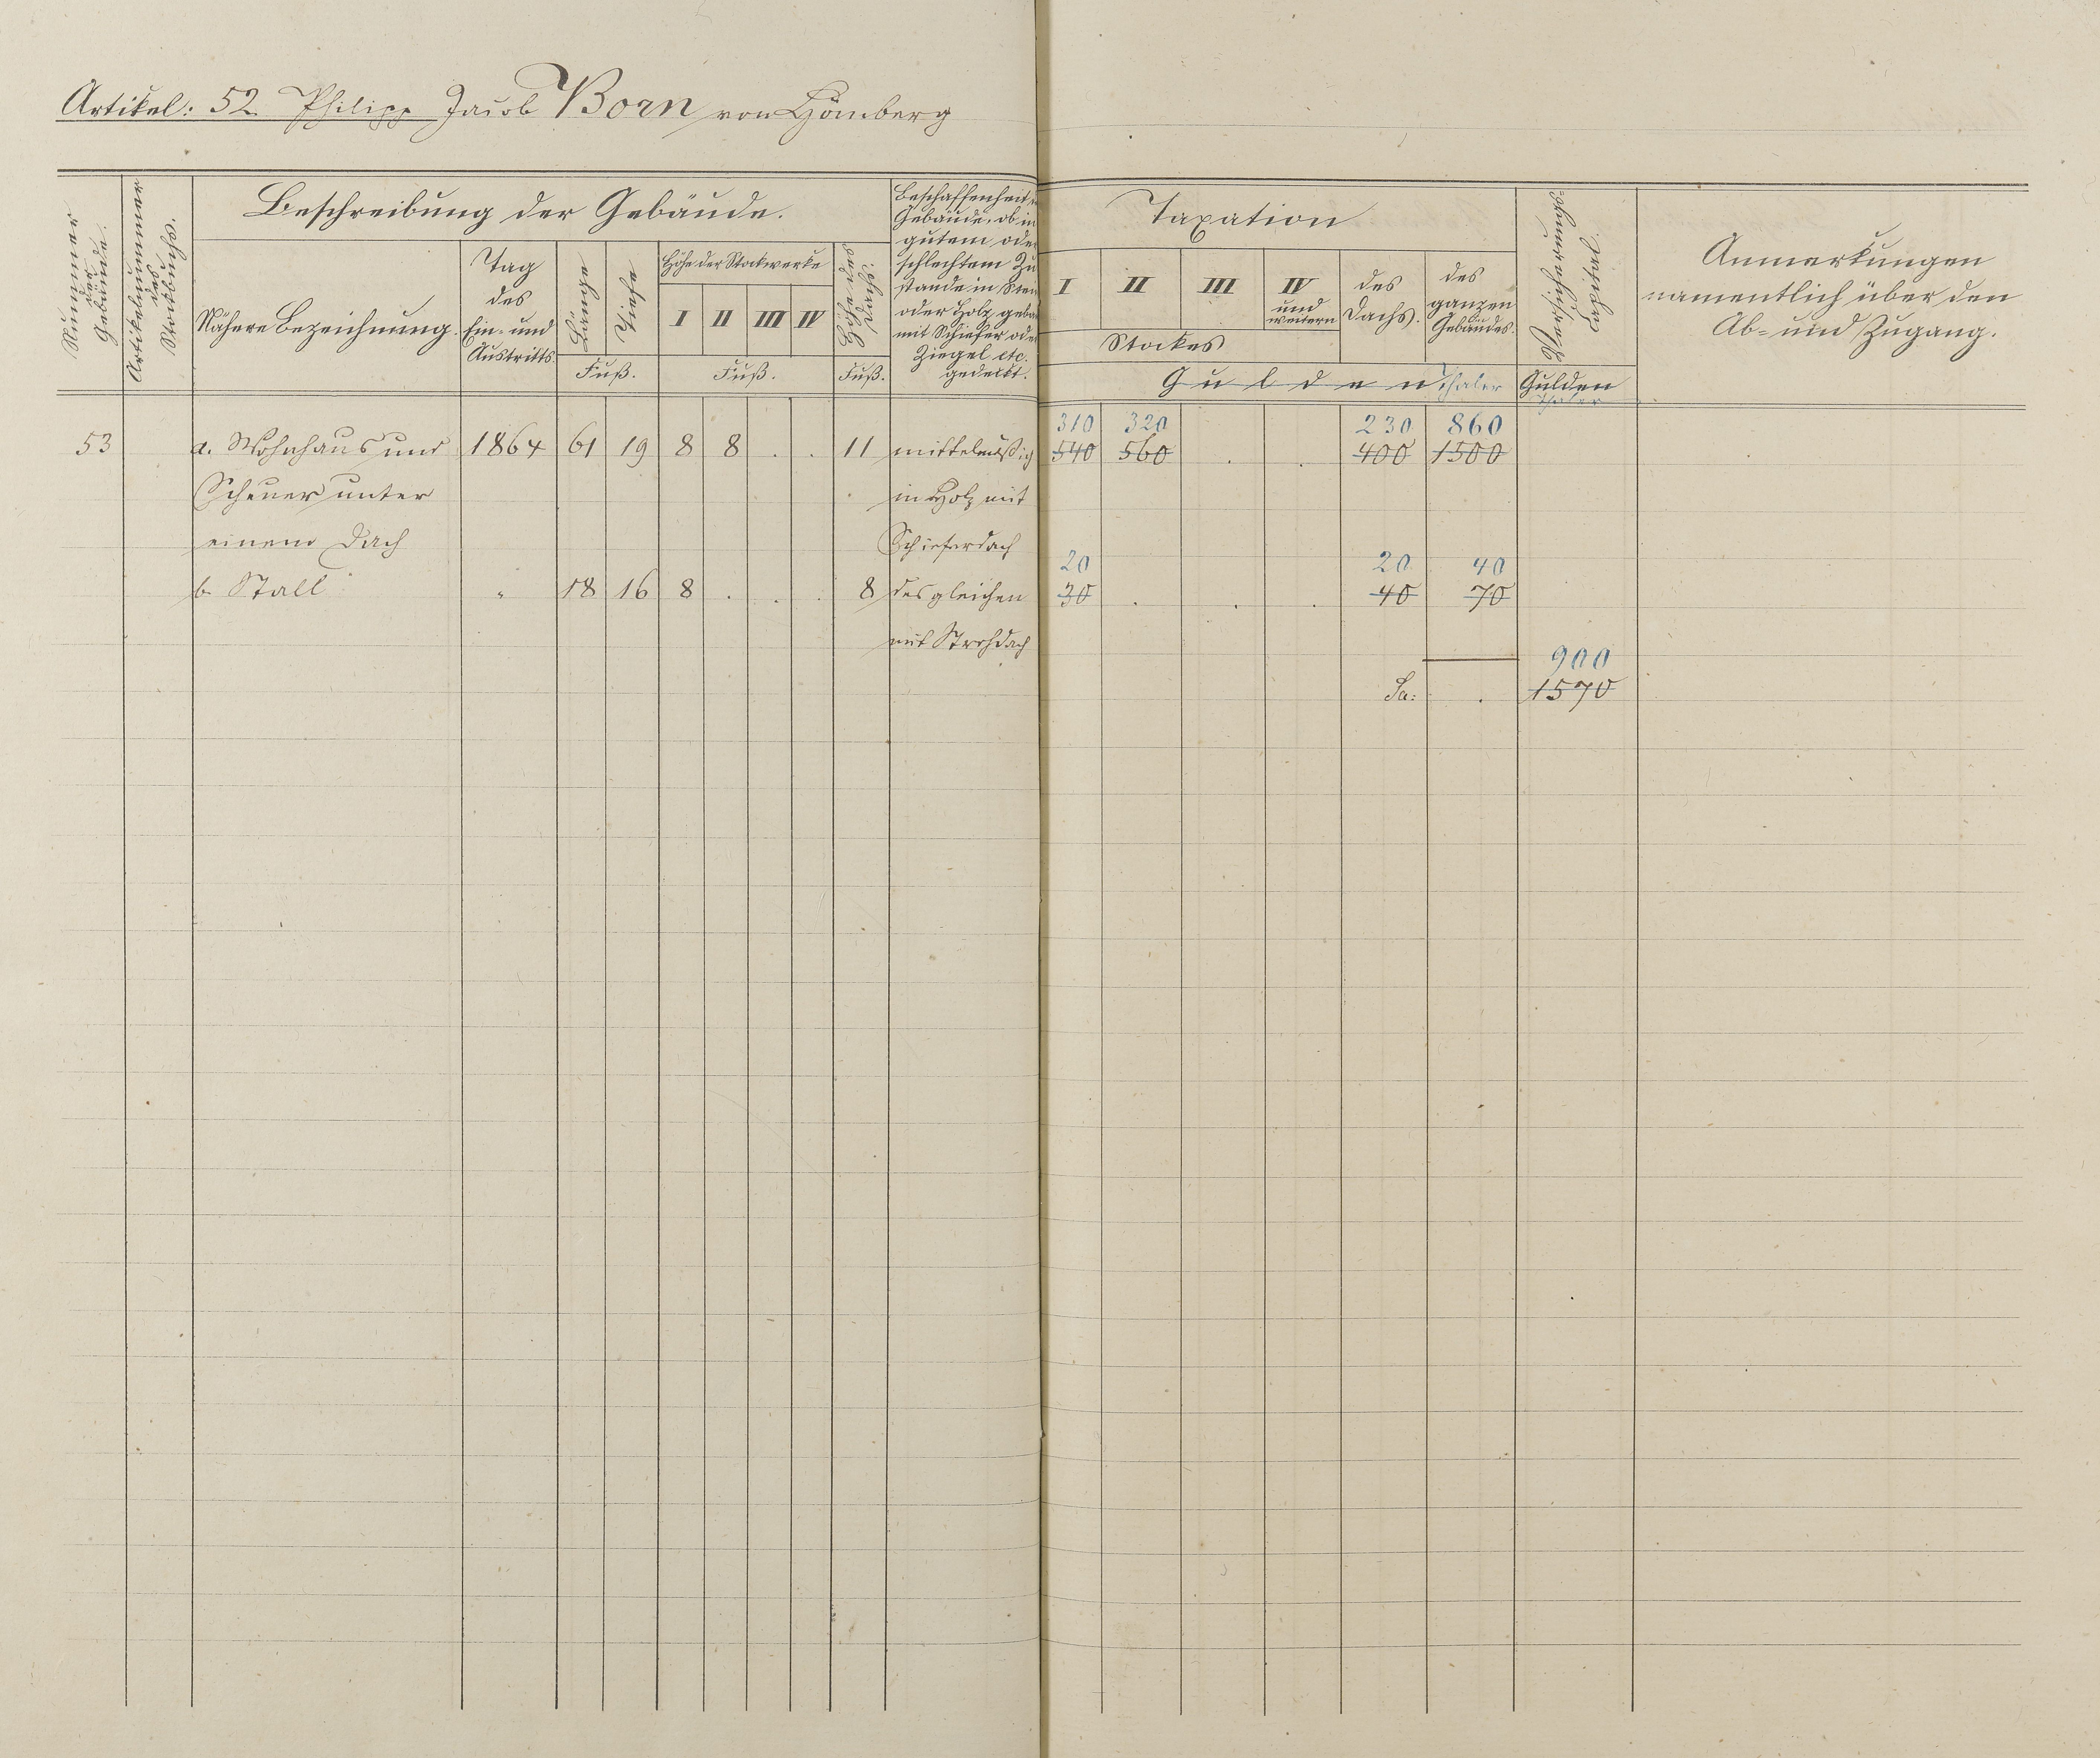 Artikel: 52. Philipp Jacob Born von Hömberg
Nummer der Gebäude.
Artikelnummer des Stockbuchs.
Beschreibung der Gebäude.
Nähere Bezeichnung.
Tag
des
Ein- und
Austritts.
Länge
Tiefe
Fuß.
Höhe der Stockwerke
I II III IV
Fuß.
Höhe des Dachs.
Fuß.
Beschaffenheit
Gebäude, ob in
gutem oder
schlechtem Zu
stande in Stein
oder Holz gebaut
mit Schiefer oder
Ziegel etc.
gedeckt.
Taxation
I II III IV
und
weitern
Stockes
des
Dachs.
des
ganzen
Gebäudes.
Gulden Thaler
Versicherungs-
Capital.
Gulden
Thaler
Anmerkungen
namentlich über den
Ab- und Zugang.
310 320 230 860
53 a. Wohnhaus und 1864 61 19 8 8 . . 11 mittelmäßig 540 560 . . 400 1500
Scheuer unter in Holz mit
einem Dach Schieferdach
20 20 40
b. Stall " 18 16 8 . . . 8 desgleichen 30 . . . 40 70
mit Strohdach
900
Sa: . 1570